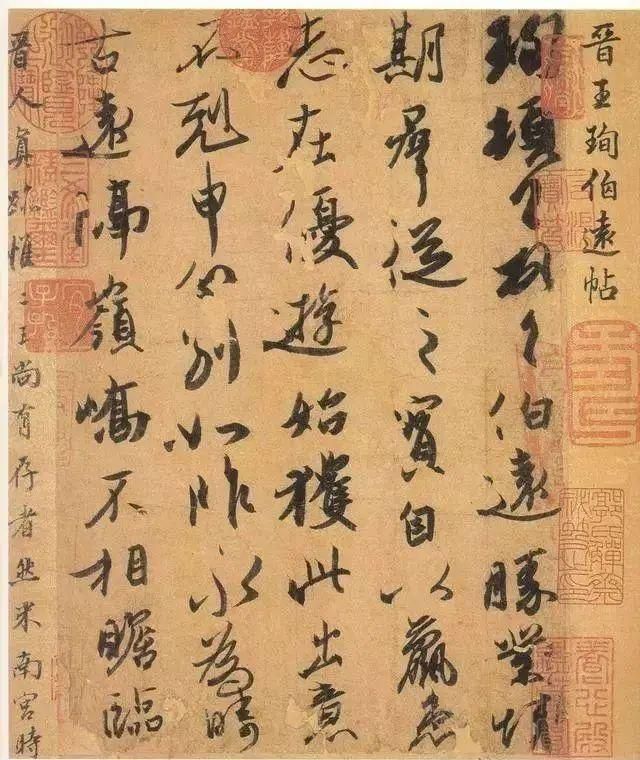 晉王珣伯遠帖
珣頓首頓首伯遠勝業情
期群從之寶自以羸患
志在優遊始獲此出意
不剋申分別如昨永為疇
古遠隔嶺嶠不相瞻臨
晉人真跡惟二王尚有存者然米南宮時